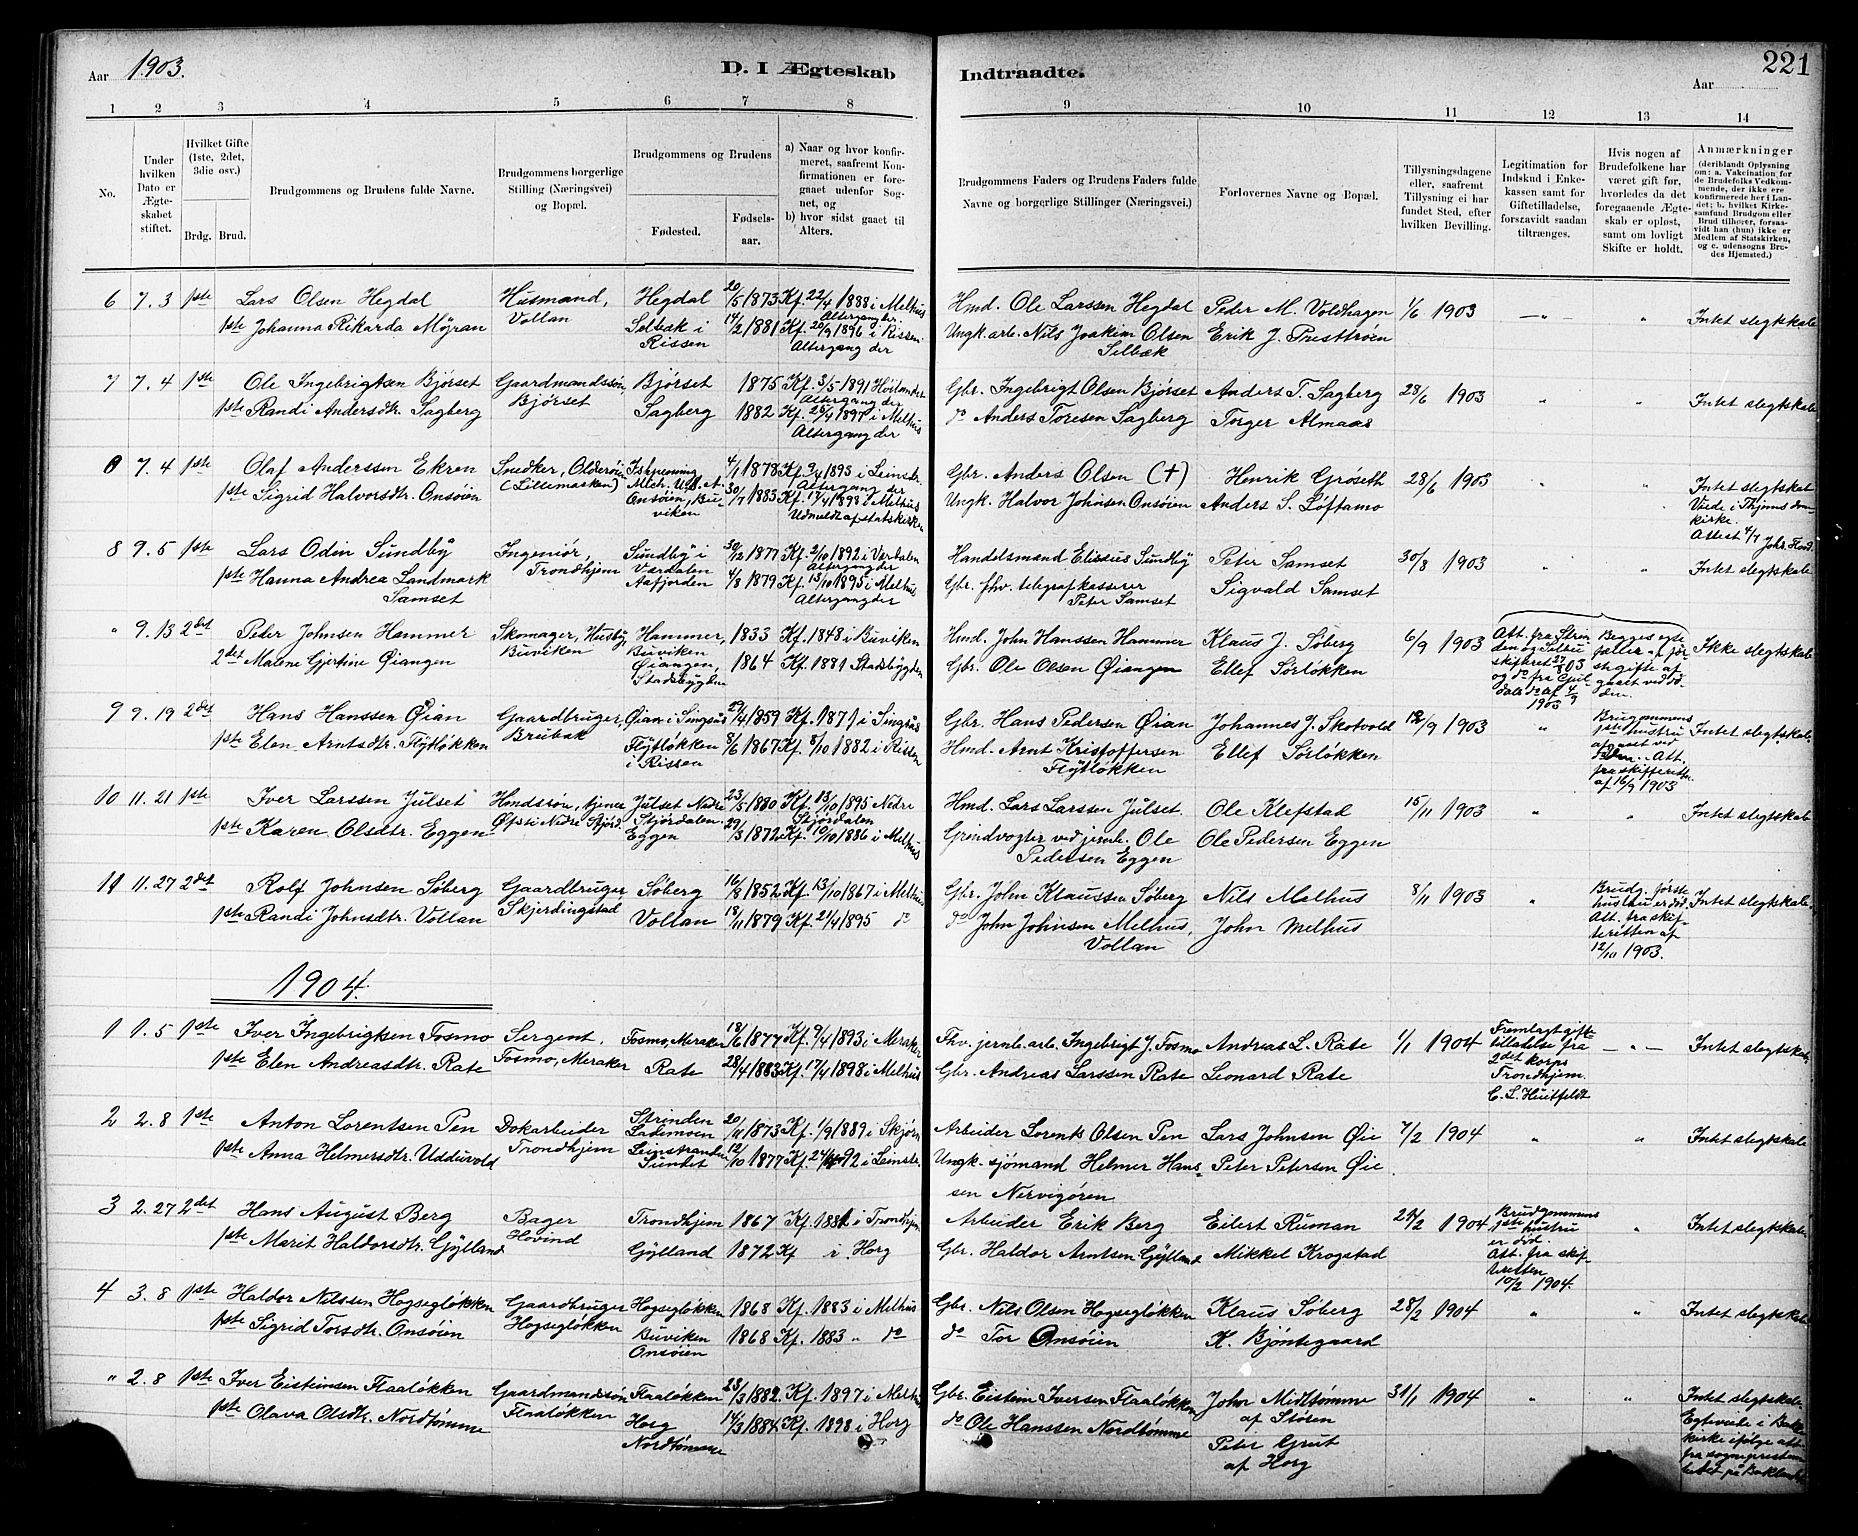 Aar 1903.
D. I Ægteskab
Indtraadte.
Aar
221
1 2 3 4 5 6 7 8 9 10 11 12 13 14
No.
Under hvilken Dato er Ægteskabet stiftet.
Hvilket Gifte (1ste, 2det, 3die osv.)
Brdg. Brud.
Brudgommens og Brudens fulde Navne.
Brudgommens borgerlige Stilling (Næringsvei) og Bopæl.
Brudgommens og Brudens
Fødested.
Fødselsaar.
a) Naar og hvor konfirmeret, saafremt Konfirmationen er foregaaet udenfor Sognet, og
b) hvor sidst gaaet til Alters.
Brudgommens Faders og Brudens Faders fulde Navne og borgerlige Stillinger (Næringsvei.)
Forlovernes Navne og Bopæl.
Tillysningsdagene eller, saafremt Tillysning ei har fundet Sted, efter hvilken Bevilling.
Legitimation for Indskud i Enkekassen samt for Giftetilladelse, forsaavidt saadan tiltrænges.
Hvis nogen af Brudefolkene har været gift før, hvorledes da det foregaaende Ægteskab er opløst, samt om lovligt Skifte er holdt.
Anmærkninger
(deriblandt Oplysning om: a. Vakcination for de Brudefolks Vedkommende, der ikke er konfirmerede her i Landet; b. hvilket Kirkesamfund Brudgom eller Brud tilhører, forsaavidt han (hun) ikke er Medlem af Statskirken, og c. udensogns Brudes Hjemsted.)
6 7.3 1ste Lars Olsen Hegdal Husmand, Hegdal 20/5 1873 Kf. 22/4 1888 i Melhus Hmd. Ole Larssen Hegdal Peder M. Voldhagen 1/6 1903 — " — " Intet slegtskab
1ste Johanna Rikarda Möyran Vollan Selbæk i Rissen 14/2 1881 Kf. 20/9 1896 i Rissen Altergang der Ungk. arb. Nils Joakim Olsen Selbæk Erik J. Presttrøen
7 7.4 1ste Ole Ingebrigtsen Bjørset Gaardmandssøn, Bjørset 1875 Kf. 3/5 1891 Høilandet Altergang der Gbr. Ingebrigt Olsen Bjørset Anders T. Sagberg 28/6 1903 " " Intet slegtskab
1ste Randi Andersdtr. Sagberg Bjørset Sagberg 1882 Kf. 25/4 1897 i Melhus Altergang der do Anders Toresen Sagberg Torger Almaas
0 7.4 1ste Olaf Anderssen Ekren Snedker, Olderøien 4/1 1878 Kf. 1895 i Leinstr. Altergang der Gbr. Anders Olsen (+) Henrik Grøseth 28/6 1903 " " Intet slegtskab
1ste Sigrid Halvorsdtr. Onsøien (Lillemarken) Onsøien, Buviken 30/7 1883 Kf. 17/4 1898 i Melhus Udmeldt af statskirken Ungk. Halvor Johnsen Onsøien Anders S. Løftamo Viede i Thjems domkirke. Attest 4/7
8 9.5 1ste Lars Odin Sundby Ingeniør, Sundby i Værdalen 30/12 1877 Kf. 2/10 1892 i Værdalen Altergang der Handelsmand Elisæus Sundby Peter Samset 30/8 1903 " " Intet slegtskab
1ste Hanna Andrea Landmark Samset Trondhjem Aafjorden 4/8 1879 Kf. 13/10 1895 i Melhus Altergang der Gbr. fhv. telegrafkasserer Peter Samset Sigvald Samset
" 9.13 2det Peder Johnsen Hammer Skomager, Husby, Hammer, Buviken 1833 Kf. 1848 i Buviken Hmd. John Hanssen Hammer Klaus J. Søberg 6/9 1903 Att. fra Strinden og Selbu Begges egtefæller af første gifte afgaaet ved døden. Ikke slegtskab
2det Malene Gjertine Øiangen Buviken Øiangen, Stadsbygden 1864 Kf. 1881 Stadsbygden Gbr. Ole Olsen Øiangen Ellef Sörløkken
9 9.19 2det Hans Hanssen Øian Gaardbruger, Øian i Singsås 29/4 1859 Kf. 1871 i Singsås Gbr. Hans Pedersen Øian Johannes J. Skotvold 12/9 1903 " Brugommens 1ste hustru afgaaet ved døden. Att. fra skifteretten af 16/9 1903 Intet slegtskab.
1ste Elen Arntsdtr. Flytløkken Breibak Flytløkken i Rissen 8/6 1867 Kf. 8/10 1882 i Rissen Hmd. Arnt Kristoffersen Flytløkken Ellef Sörløkken
10 11.21 1ste Iver Larssen Julset Hmdssøn, tjener Julset Nedre Stjørdalen. 23/5 1880 Kf. 13/10 1895 Nedre Stjördalen Hmd. Lars Larssen Julset. Ole Klefstad 15/11 1903 " " Intet slegtskab
1ste Karen Olsdtr. Eggen Øfsti Nedre Stjörd. Eggen 29/3 1872 Kf. 10/10 1886 i Melhus Grindvogter ved jernb. Ole Pedersen Eggen Ole Pedersen Eggen
11 11.27 2det Rolf Johnsen Søberg Gaardbruger Søberg 16/8 1852 Kf. 13/10 1867 i Melhus Gbr. John Klaussen Söberg Nils Melhus 8/11 1903 " Brudg. første hustru er död. Att. fra skifteretten af 12/10 1903. Intet slegtskab
1ste Randi Johnsdtr. Vollan Skjerdingstad Vollan 18/11 1879 Kf. 21/4 1895 do do John Johnsen Melhus, Vollan John Melhus
1904.
1 1.5 1ste Iver Ingebrigtsen Fosmo Sergent, Fosmo, Meraker 18/6 1877 Kf. 9/4 1893 i Meraker Fhv. jernb. arb. Ingebrigt J. Fosmo Andreas L. Rate 1/1 1904 Fremlagt giftetilladelse fra 2det korps Trondhjem. C. L. Huitfeldt — " — Intet slegtskab
1ste Elen Andreasdtr. Rate Fosmo, Meraker Rate 28/4 1883 Kf. 17/4 1898 i Melhus Gbr. Andreas Larssen Rate Leonard Rate
2 2.8 1ste Anton Lorentsen Pen Dokarbeider Strinden Lademoen 20/11 1873 Kf. 1/9 1889 i Skjørn Arbeider Lorents Olsen Pen Lars Johnsen Øie 7/2 1904 " " Intet slegtskab
1ste Anna Helmersdtr. Udduvold Trondhjem Leinstranden Sundet 12/10 1877 Kf. 24/4 92 i Leinstr. Ungk. sjömand Helmer Hanssen Nervigøren Peter Petersen Øie
3 2.27 2det Hans August Berg Bager Trondhjem 1867 Kf. 1881 i Trondhjem Arbeider Erik Berg Eilert Ruman 21/2 1904 Brudgommens 1ste hustru er död. Att. fra skifteretten 10/2 1904. " Intet slegtskab
1ste Marit Haldorsdtr. Gylland Hovind Gylland 1872 Kf i Horg Gbr. Haldor Arntsen Gylland Mikkel Krogstad
4 3.8 1ste Haldor Nilssen Hogsegløkken Gaardbruger Hogsegløkken 1868 Kf. 1883 i Melhus Gbr. Nils Olsen Hogsegløkken Klaus Søberg 28/2 1904 " " Intet slegtskab
1ste Sigrid Torsdtr. Onsöien Hogsegløkken Buviken Onsöien 1868 Kf. 1883 " do do Tor Onsöien K. Bjöntegaard
" 2.8 1ste Iver Eisteinsen Flaaløkken Gaardmandssön Flaaløkken 23/3 1882 Kf. 1897 i Melhus Gbr. Eistein Iversen Flaaløkken John Midttømme af Stören 31/1 1904 " " Intet slegtskab
1ste Olava Olsdtr. Nordtømme Flaaløkken Horg Nordtømme 14/3 1884 Kf. 1898 i Horg do Ole Hanssen Nordtømme Peter Grut af Horg Egteviede i Bakke kirke ifølge att. fra sogneprestembedet på Baklandet